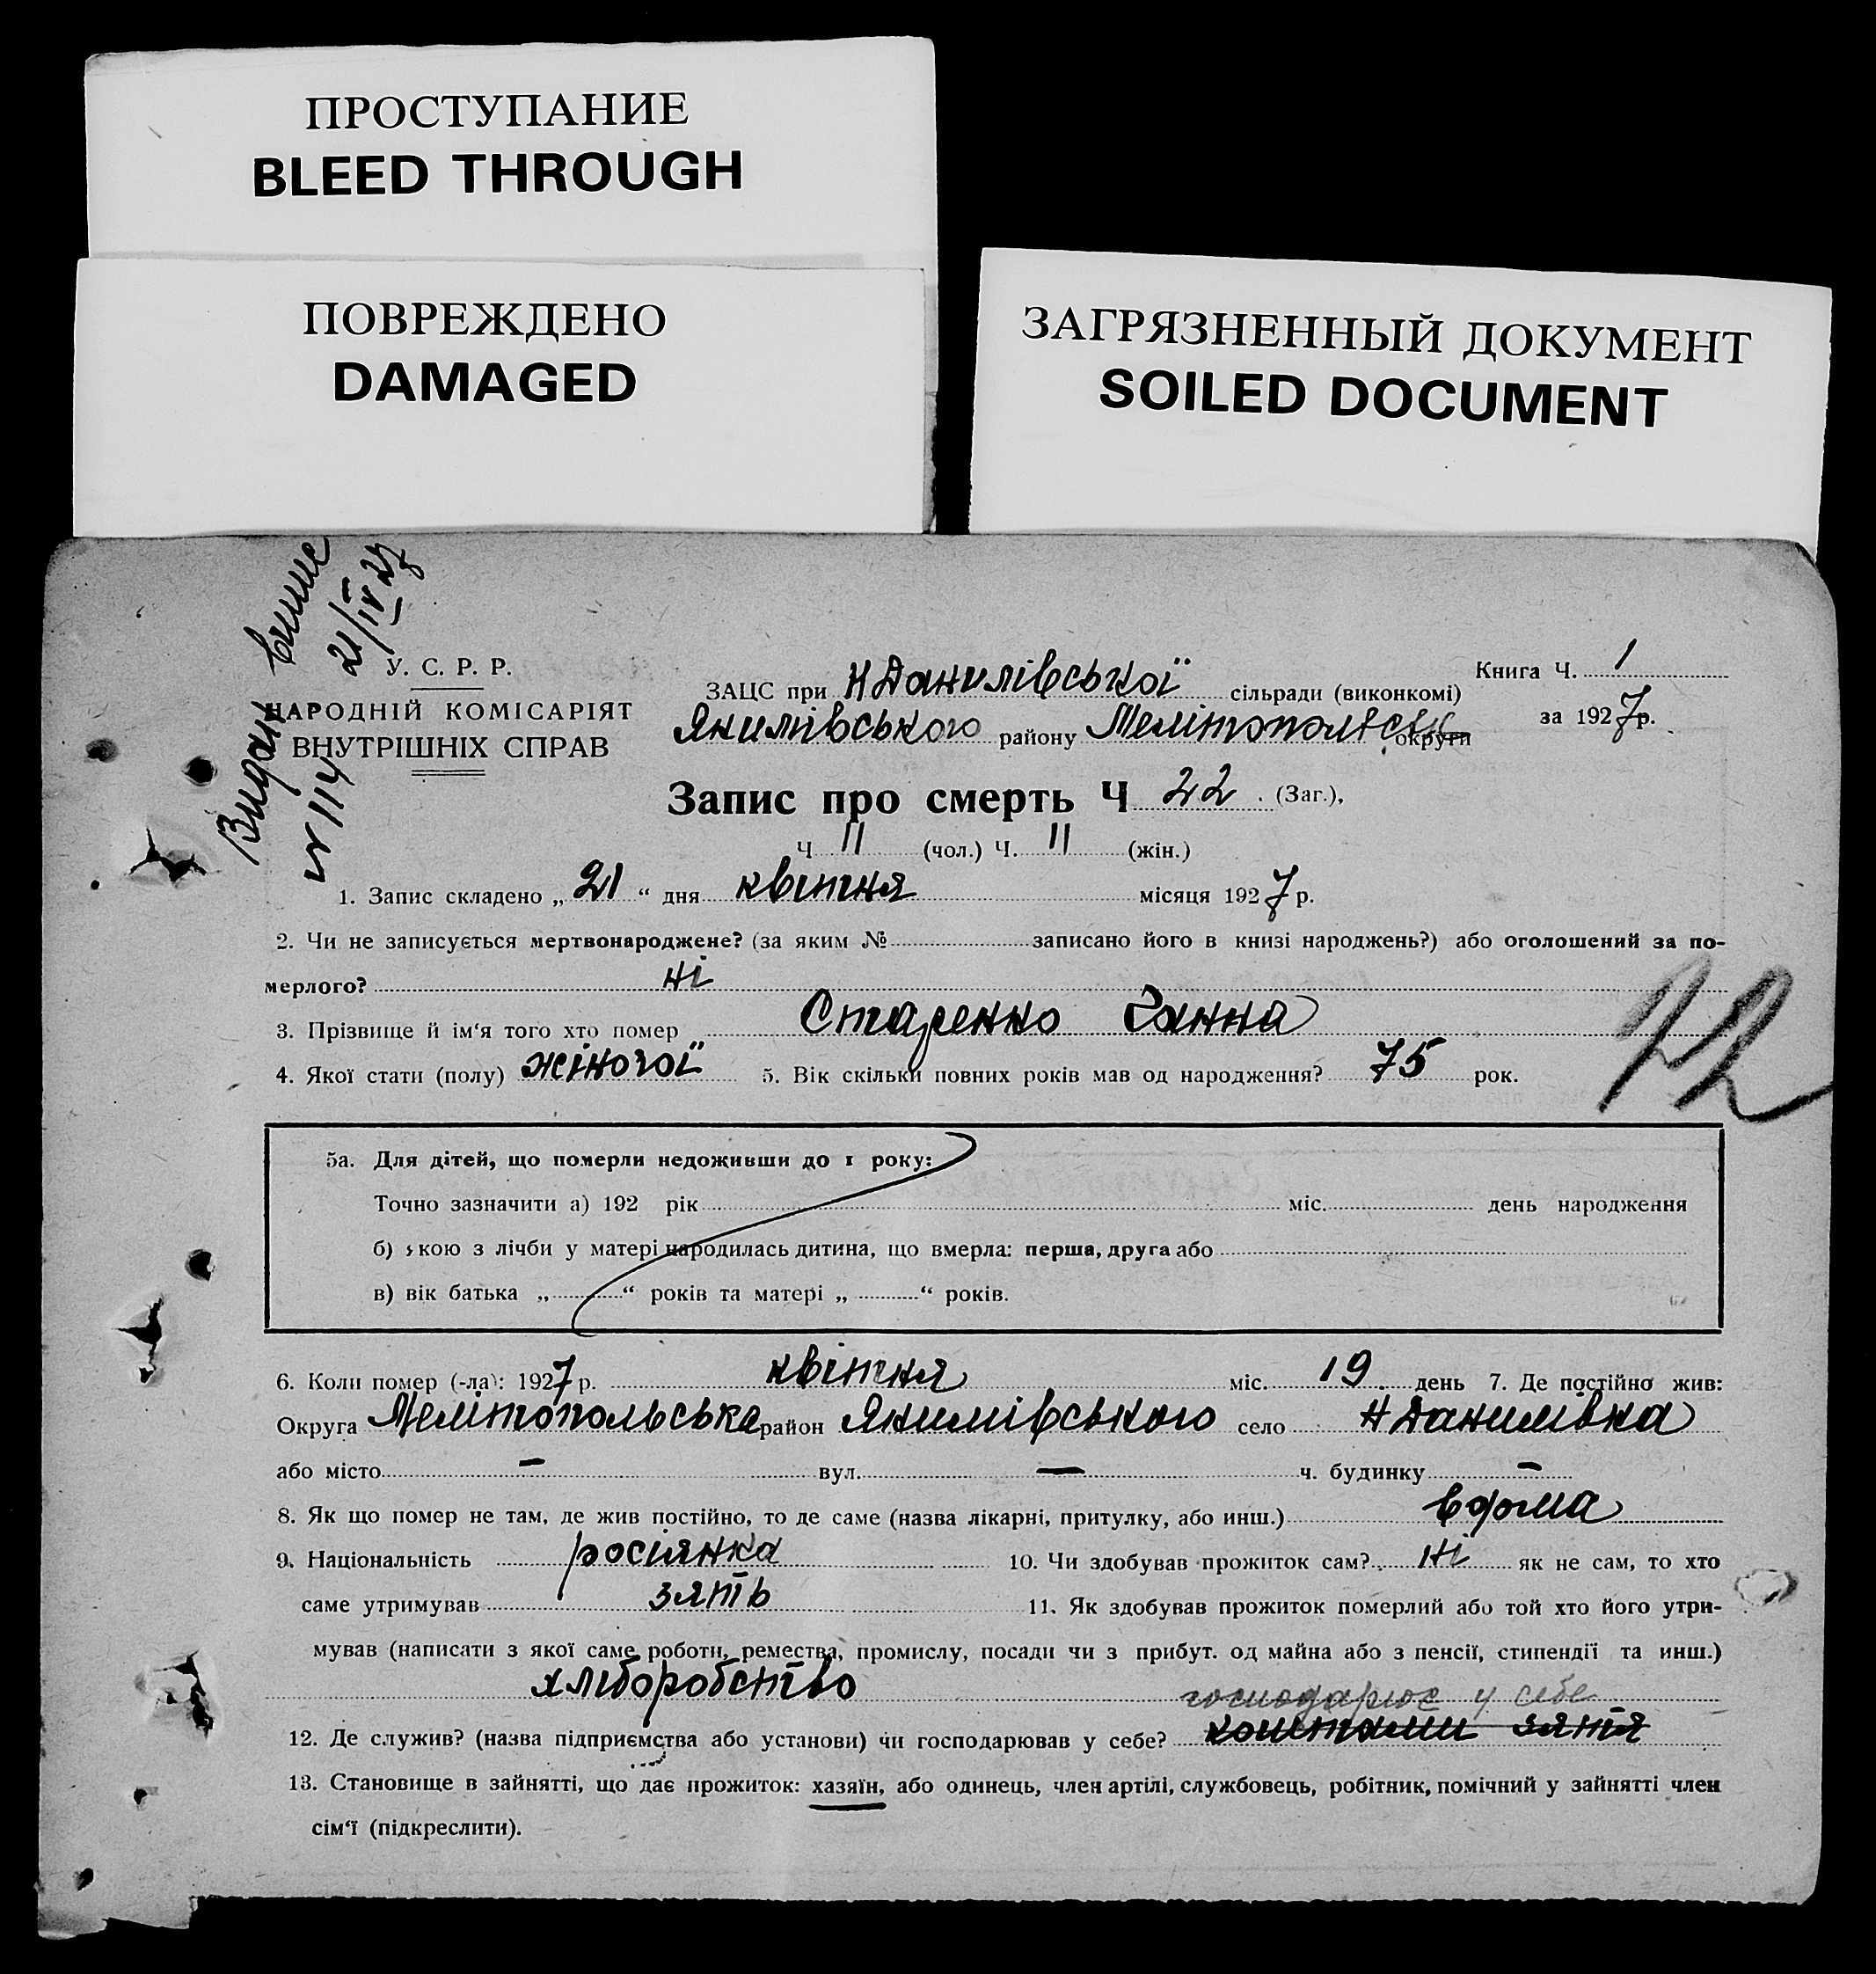 ПРОСТУПАНИЕ
BLEED THROUGH
ПОВРЕЖДЕНО
DAMAGED
ЗАГРЯЗНЕННЫЙ ДОКУМЕНТ
SOILED DOCUMENT
Видан
№ 114
21/IV 27
У. С. Р. Р.
НАРОДНІЙ КОМІСАРІЯТ
ВНУТРІШНІХ СПРАВ
Книга Ч. 1
за 1927 р.
ЗАЦС при Н Данилівської сільради (виконкомі)
Якимівського району Мелітопольськ округи
Запис про смерть Ч 22. (Заг.),
Ч 11 (чол.) Ч. 11 (жін.)
1. Запис складено „ 21 “ дня квітня місяця 1927 р.
2. Чи не записується мертвонароджене? (за яким № записано його в книзі народжень?) або оголошений за по-
мерлого? ні
3. Прізвище й ім‘я того хто помер Старенко Ганна
4. Якої стати (полу) жіночої 5. Вік скільки повних років мав од народження? 75 рок.
5а. Для дітей, що померли недоживши до 1 року:
Точно зазначити а) 192 рік міс. день народження
б) якою з лічби у матері народилась дитина, що вмерла: перша, друга або
в) вік батька „ “ років та матері „ “ років.
6. Коли помер (-ла): 1927 р. квітня міс. 19. день 7. Де постійно жив:
Округа Мелітопольська район Якимівського село Н Данилівка
або місто – вул. – ч. будинку –
8. Як що помер не там, де жив постійно, то де саме (назва лікарні, притулку, або инш.) вдома
9. Національність росіянка 10. Чи здобував прожиток сам? ні як не сам, то хто
саме утримував зять 11. Як здобував прожиток померлий або той хто його утри-
мував (написати з якої саме роботи, ремества, промислу, посади чи з прибут. од майна або з пенсії, стипендії та инш.)
хліборобство господарює у себе
12. Де служив? (назва підприємства або установи) чи господарював у себе? коштами зятя
13. Становище в зайнятті, що дає прожиток: хазяїн, або одинець, член артілі, службовець, робітник, помічний у зайнятті член
сім‘ї (підкреслити).